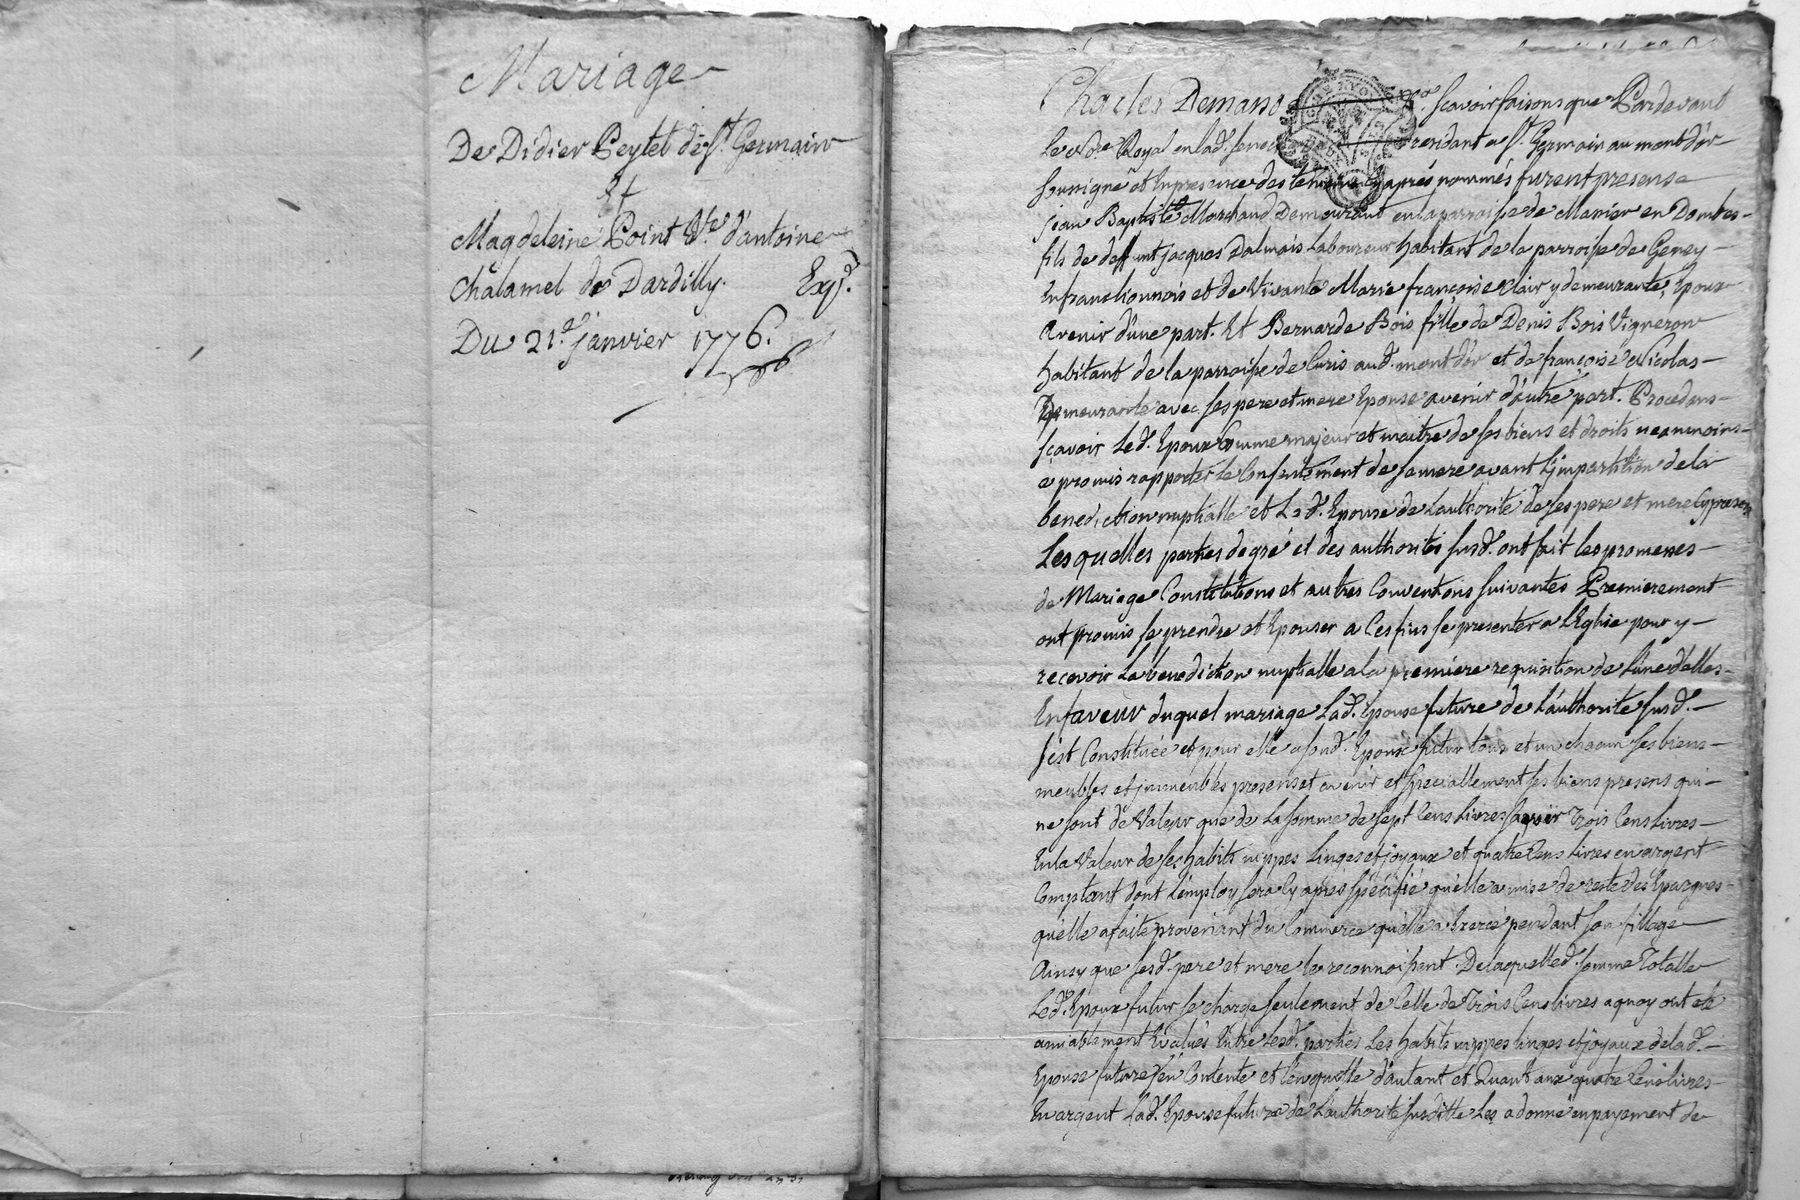 Mariage
De Didier Peytel de St. Germain
Et
Magdeleine Point Ve. d'antoine
Chalamel de Dardilly. Expd.
Du 21e. janvier 1776.
Charles Demasso &a. sçavoir faisons que Pardevant
Le Nore. Royal en lad. residant a St. Germain au mont d'or
soussigné et En presence des temoins Cy après nommés furent presens
jean Baptiste Marchand Demeurant en la parroisse de Monier en Dombes
fils de deffunt jacques Dalmais Laboureur habitant de la parroisse de Genay
En franc lionnois et de Vivante Marie françoise Clair y demeurante, Epoux
avenir d'une part. Et Bernarde Bois fille de Denis Bois Vigneron
habitant de la parroisse de Curis aud. mont d'or et de françoise Nicolas
Demeurante avec ses pere et mere Epouse avenir d'autre part. Procedans
sçavoir Led. Epoux Comme majeur et maitre de ses biens et droits neanmoins
a promis rapporter le Consentement de sa mere avant L'impartition de la
benediction nuptialle et Lad. Epouse de L'authorité de ses pere et mere Cy presens
Les quelles parties de gré et des authorités susd. ont fait les promesses
de Mariage Constitutions et autres Conventions suivantes Premierement
ont promis se prendre et Epouser a Ces fins se presenter a L'Eglise pour y
recevoir La benediction nuptialle a la premiere requisition de L'une d'elles
En faveur du quel mariage Lad. Epouse future de L'authorité susd.
s'est Constituée et pour elle a sond. Epoux futur tous et un chacun ses biens
meubles et jmmeubles presens et avenir et speciallement ses biens presens qui
ne sont de Valeur que de La somme de sept Cens Livres sçavoir Trois Cens Livres
En la Valeur de ses habits nippes Linges et joyaux et quatre Cens Livres en argent
Comptant dont L'employ sera Cy apres specifié qu'elle a mise de reste des Epargnes
qu'elle a faite provenant du Commerce qu'elle a Exercé pendant son fillage
Ainsy que sesd. pere et mere le reconnoissent. De laquelled. somme Totalle
Led. Epoux futur se charge seulement de Celle de Trois Cens livres a quoy ont eté
amiablement Evalués Entre Lesd. parties Les habits nippes linges et joyaux de lad.
Epouse future s'en Contente et L'en quitte d'autant et Quant aux quatre Cens livres
En argent Lad. Epouse future de L'authorité susditte Les a donné en payement de